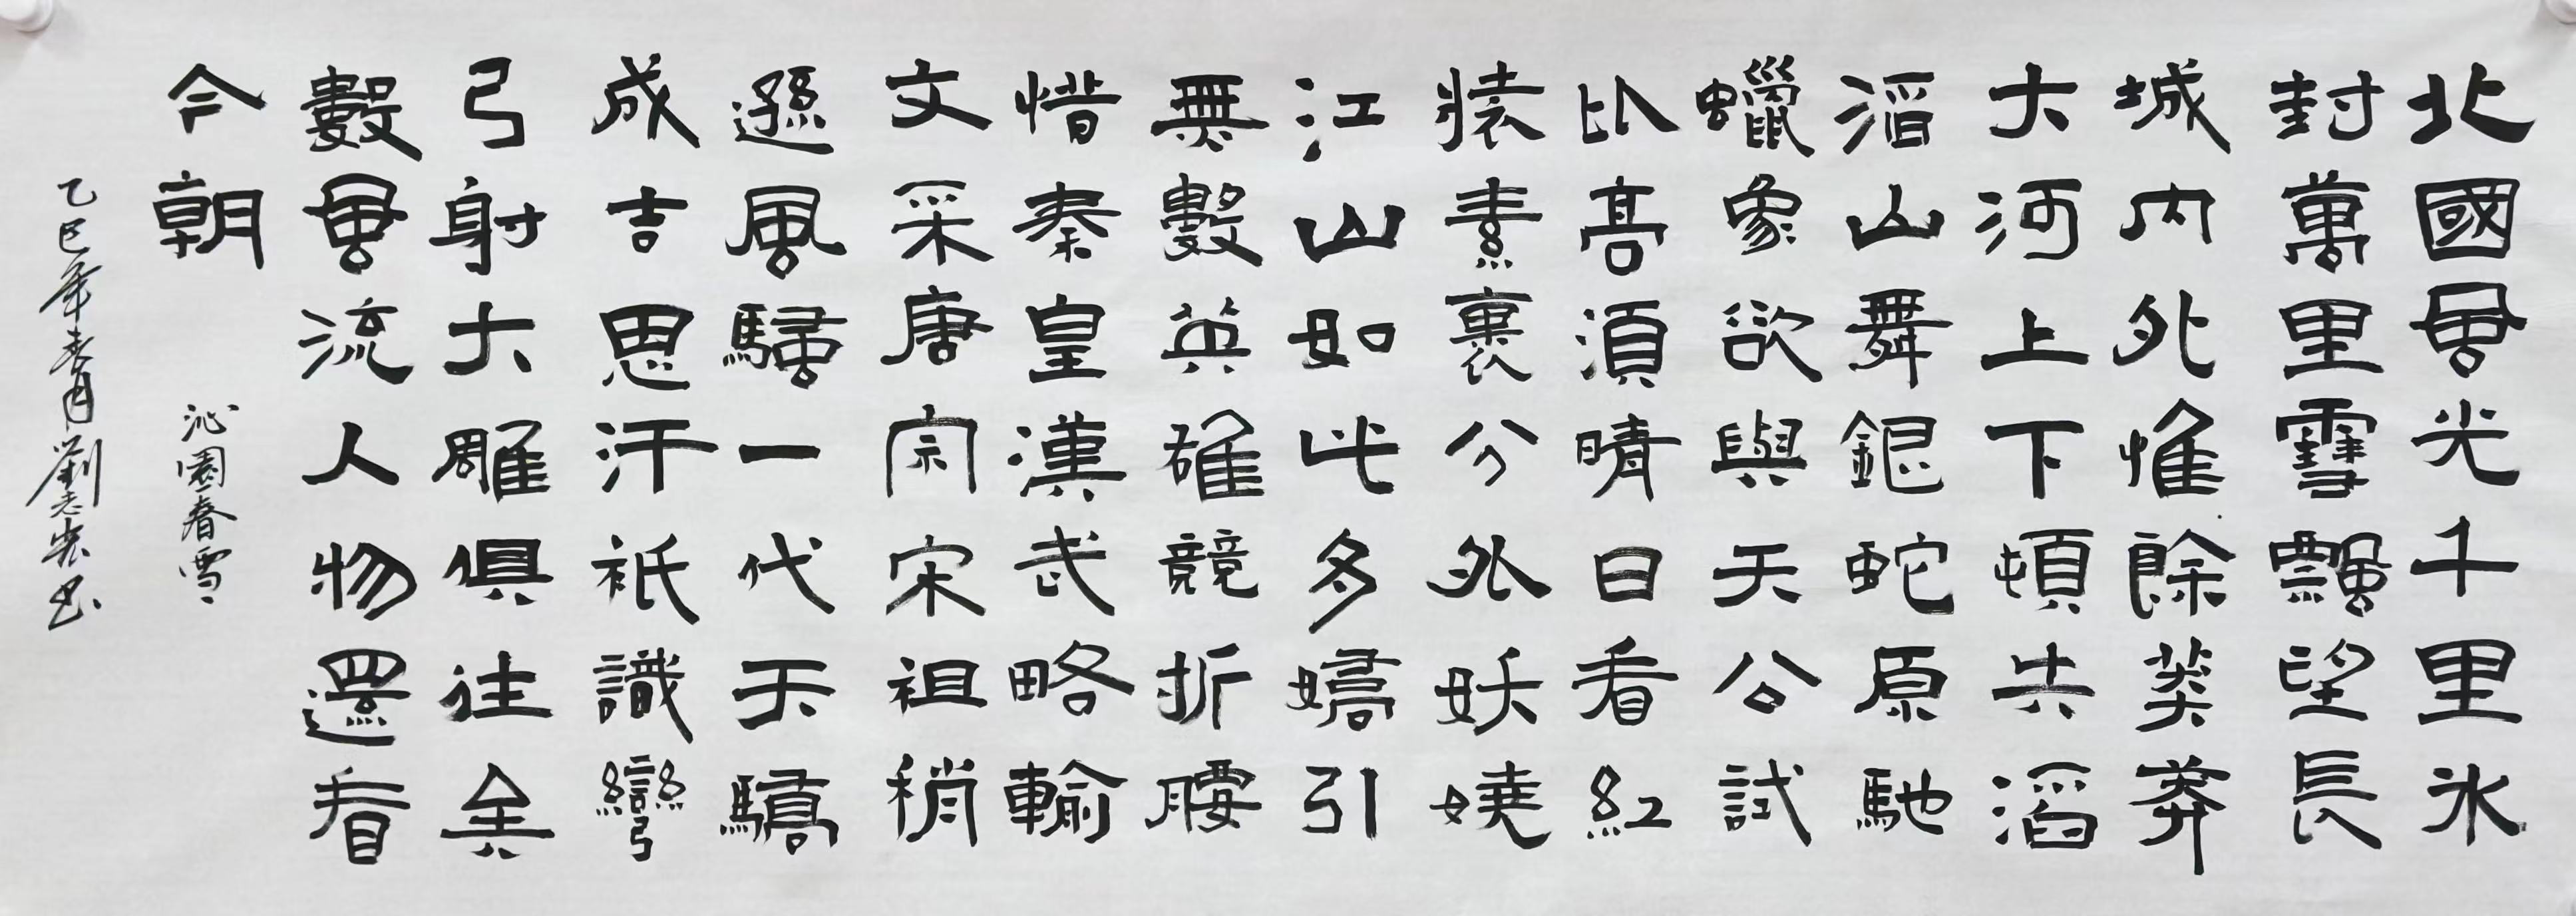 北國風光千里冰
封萬里雪飄望長
城內外惟餘莽莽
大河上下頓失滔
滔山舞銀蛇原馳
蠟象欲與天公試
比高須晴日看紅
裝素裹分外妖嬈
江山如此多嬌引
無數英雄競折腰
惜秦皇漢武略輸
文采唐宗宋祖稍
遜風騷一代天驕
成吉思汗衹識彎
弓射大雕俱往矣
數風流人物還看
今朝
沁園春雪
乙巳年春月劉志書